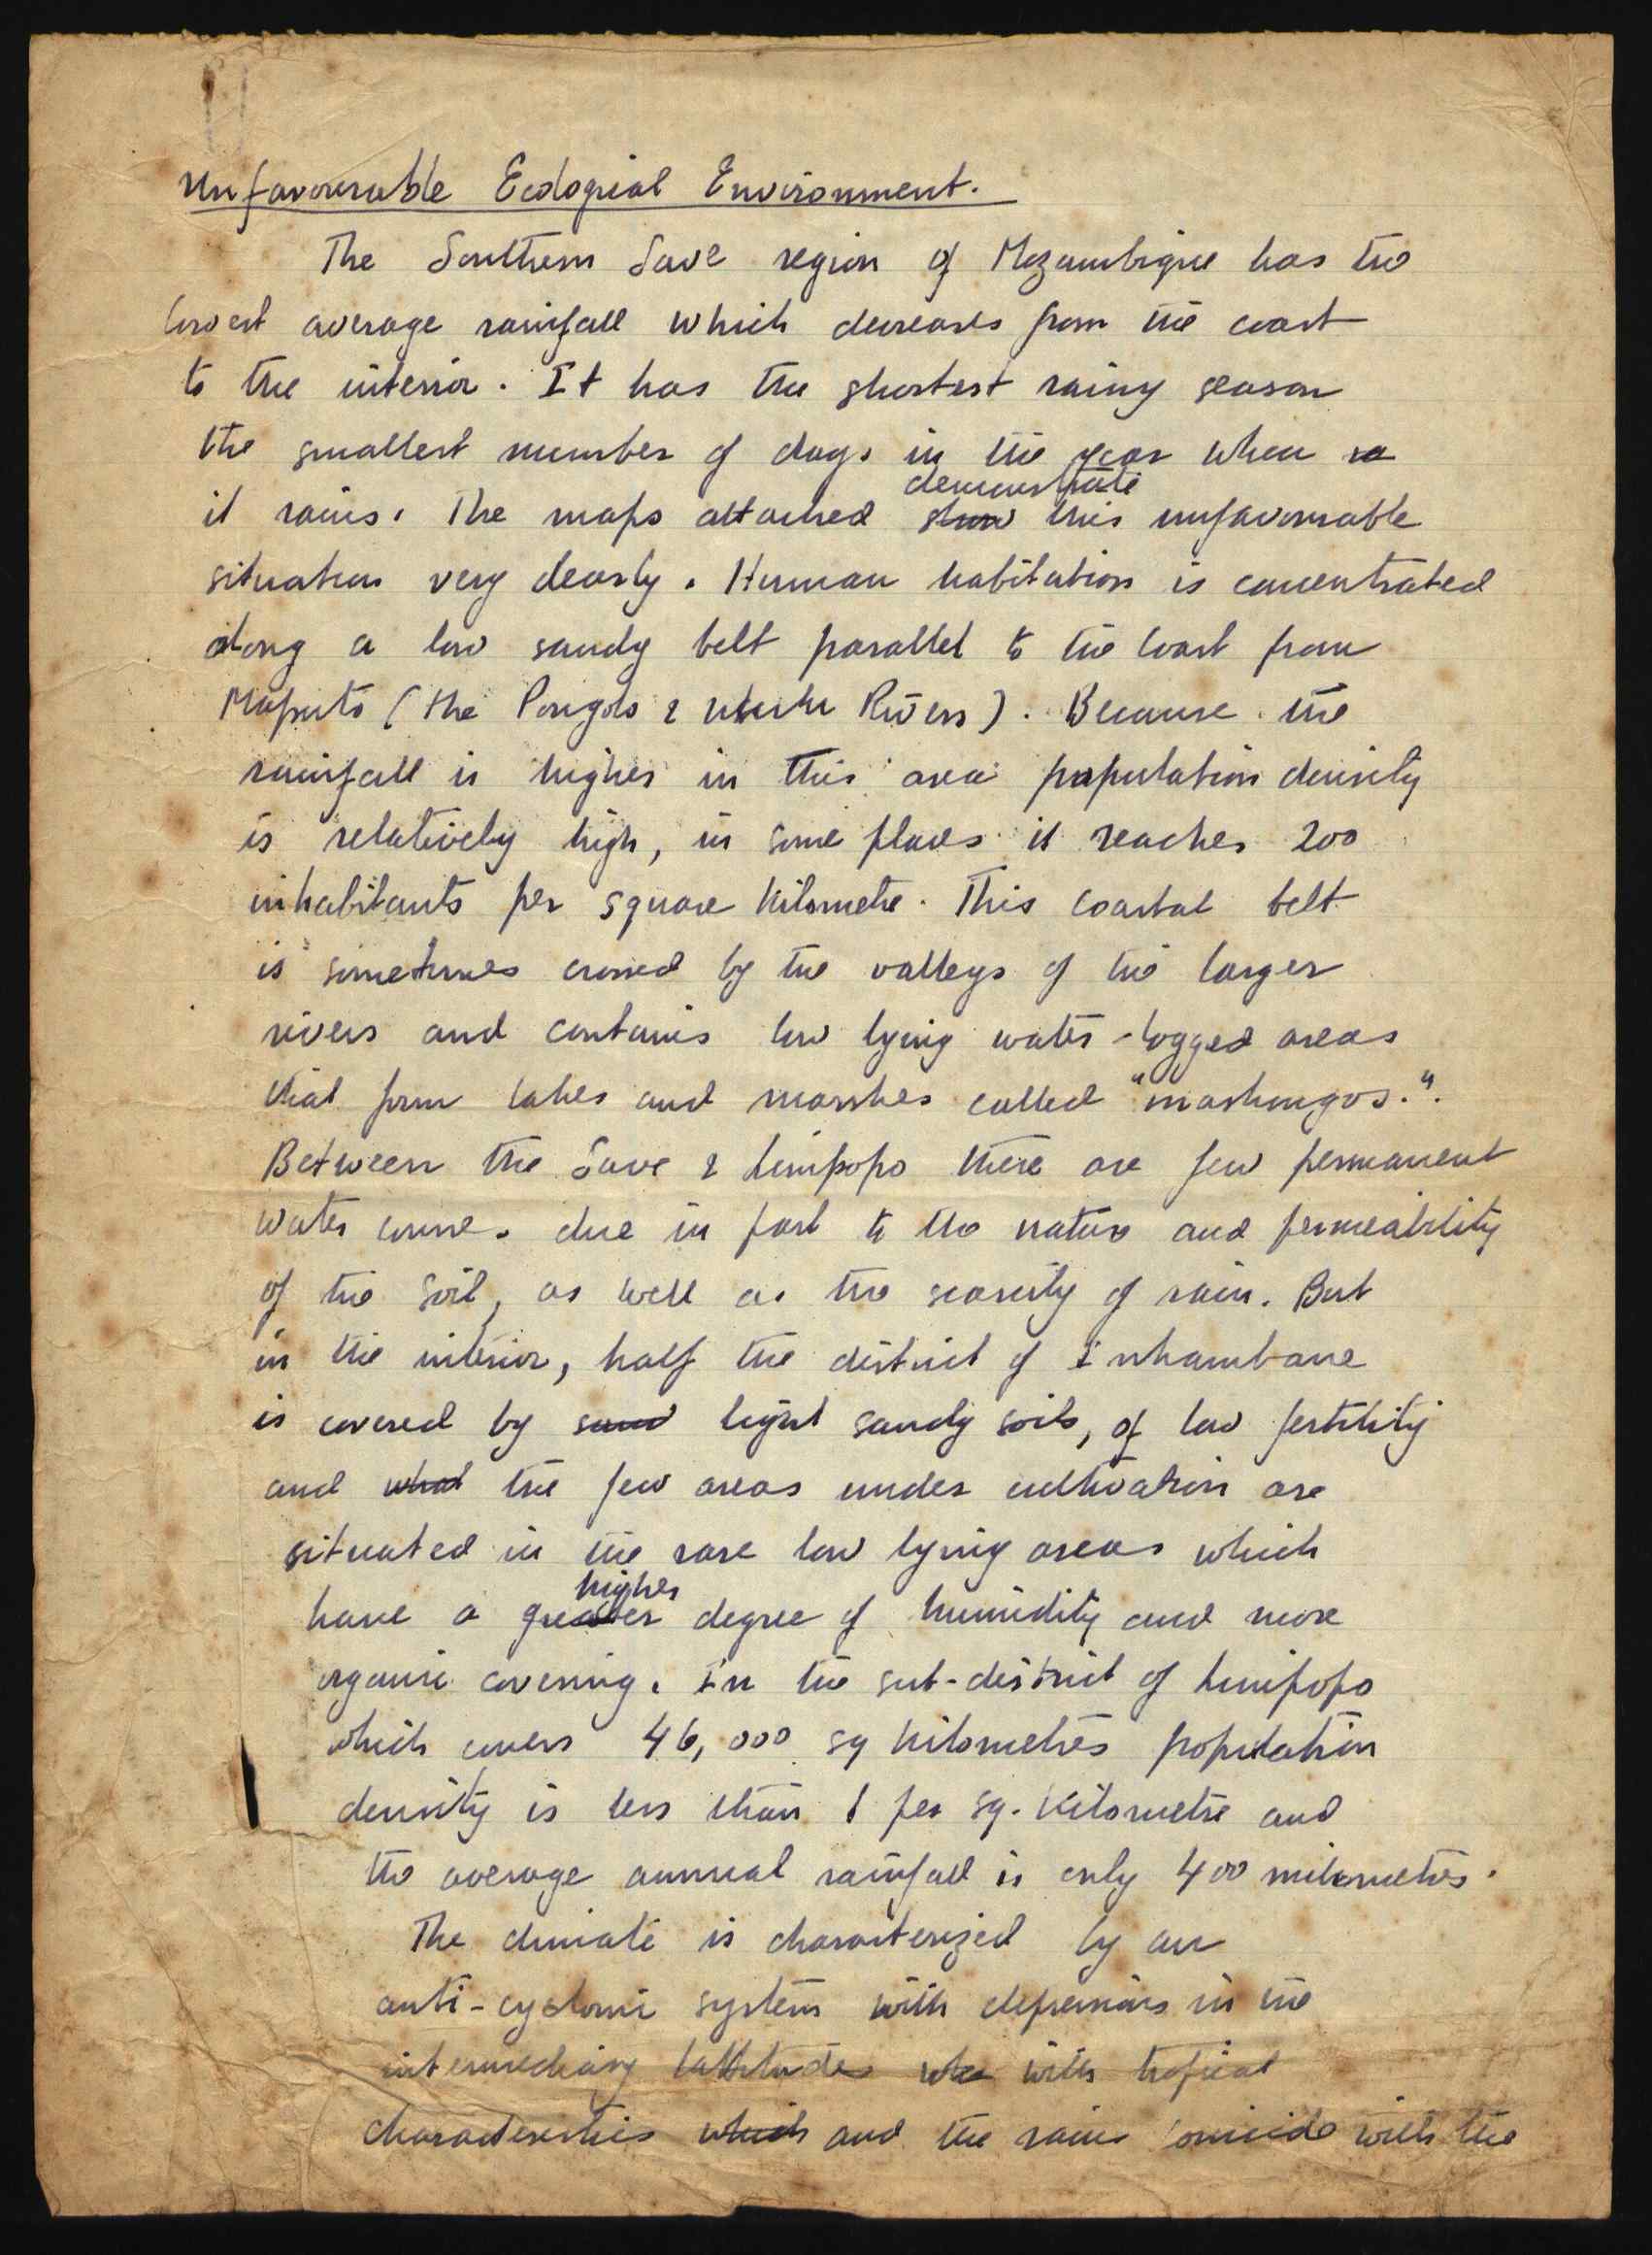 Unfavourable Ecological Environment.
The Southern Save region of Mozambique has the
lowest average rainfall which decreases from the coast
to the interior. It has the shortest rainy season
the smallest number of days in the year when ra
demonstrate
it rains. The maps attached show this unfavourable
situation very clearly. Human habitation is concentrated
along a low sandy belt parallel to the coast from
Maputo (the Pongolo & Rivers). Because the
rainfall is higher in this area population density
is relatively high, in some places it reaches 200
inhabitants per square kilometre. This coastal belt
is sometimes crossed by the valleys of the larger
rivers and contains low lying water-logged areas
that form lakes and marshes called "mashongos.".
Between the Save & Limpopo there are few permanent
water courses due in part to the nature and permeability
of the soil, as well as the scarcity of rain. But
in the interior, half the district of Inhambane
is covered by sand light sandy soils, of low fertility
and what the few areas under cultivation are
situated in the rare low lying areas which
higher
have a greater degree of humidity and more
organic covering. In the sub-district of Limpopo
which covers 46,000 sq kilometres population
density is less than 1 per sq. kilometre and
the average annual rainfall is only 400 milimetres.
The climate is characterized by an
anti-cyclonic system with depressions in the
intermediary lattitudes whe with tropical
characteristics which and the rains coincide with the